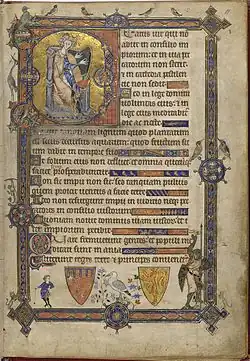 eatus uir qui nō
abiit in consilio im
piorum: et in uia pec
catorum non stetit:
et in cathedra pestilen
cie non sedit
Set in lege domini
uoluntas eius: et in
lege eius meditabi
tur die ac nocte
Et erit tanquam lignum quod plantatum
est secus decursus aquarum: quod fructum su
um dabit in tempore suo
Et folium eius non defluet: et omnia
faciet prosperabuntur
Non sic impii non sic: sed tanquam puluis
quem proicit uentus a facie terre
Ideo non resurgunt impii in iudicio: neq; pec
catores in consilio iustorum
Quoniam nouit dominus uiam iustorum: et
iter impiorum peribit
Quare fremuerunt gentes: et populi me
ditati sunt inania
Astiterunt reges terre: et principes